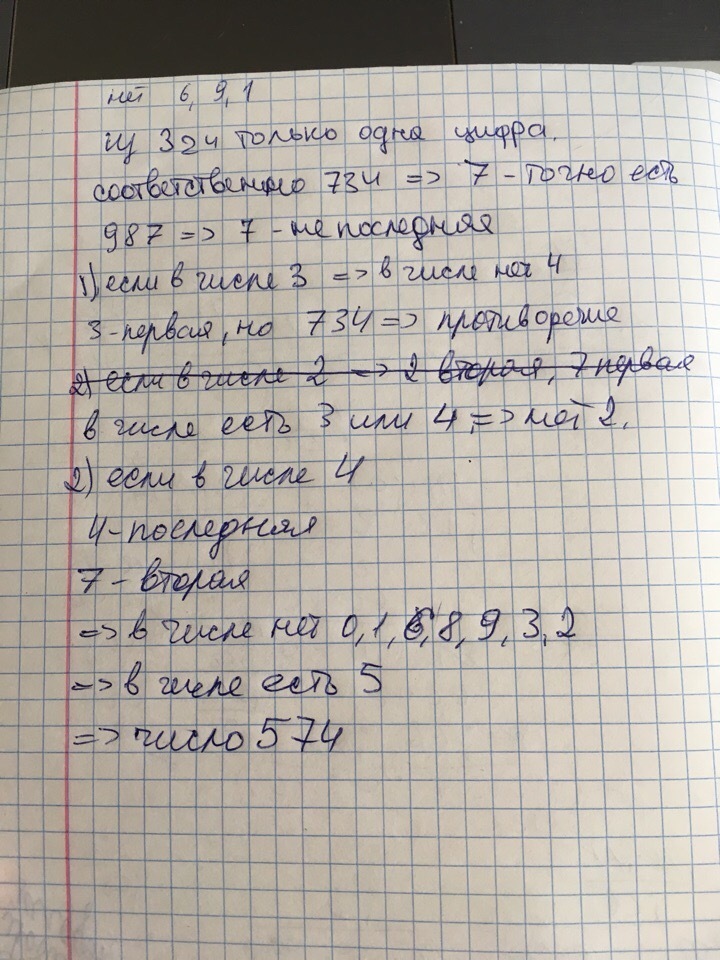 нет 6, 9, 1
из 324 только одна цифра.
соответственно 734 => 7 - точно есть
987 => 7 - не последняя
1) если в числе 3 => в числе нет 4
3 - первая, но 734 => противоречие
2) если в числе 2 => 2 вторая, 7 первая
в числе есть 3 или 4, => нет 2.
2) если в числе 4
4 - последняя
7 - вторая
=> в числе нет 0, 1, 6, 8, 9, 3, 2
=> в числе есть 5
=> число 574